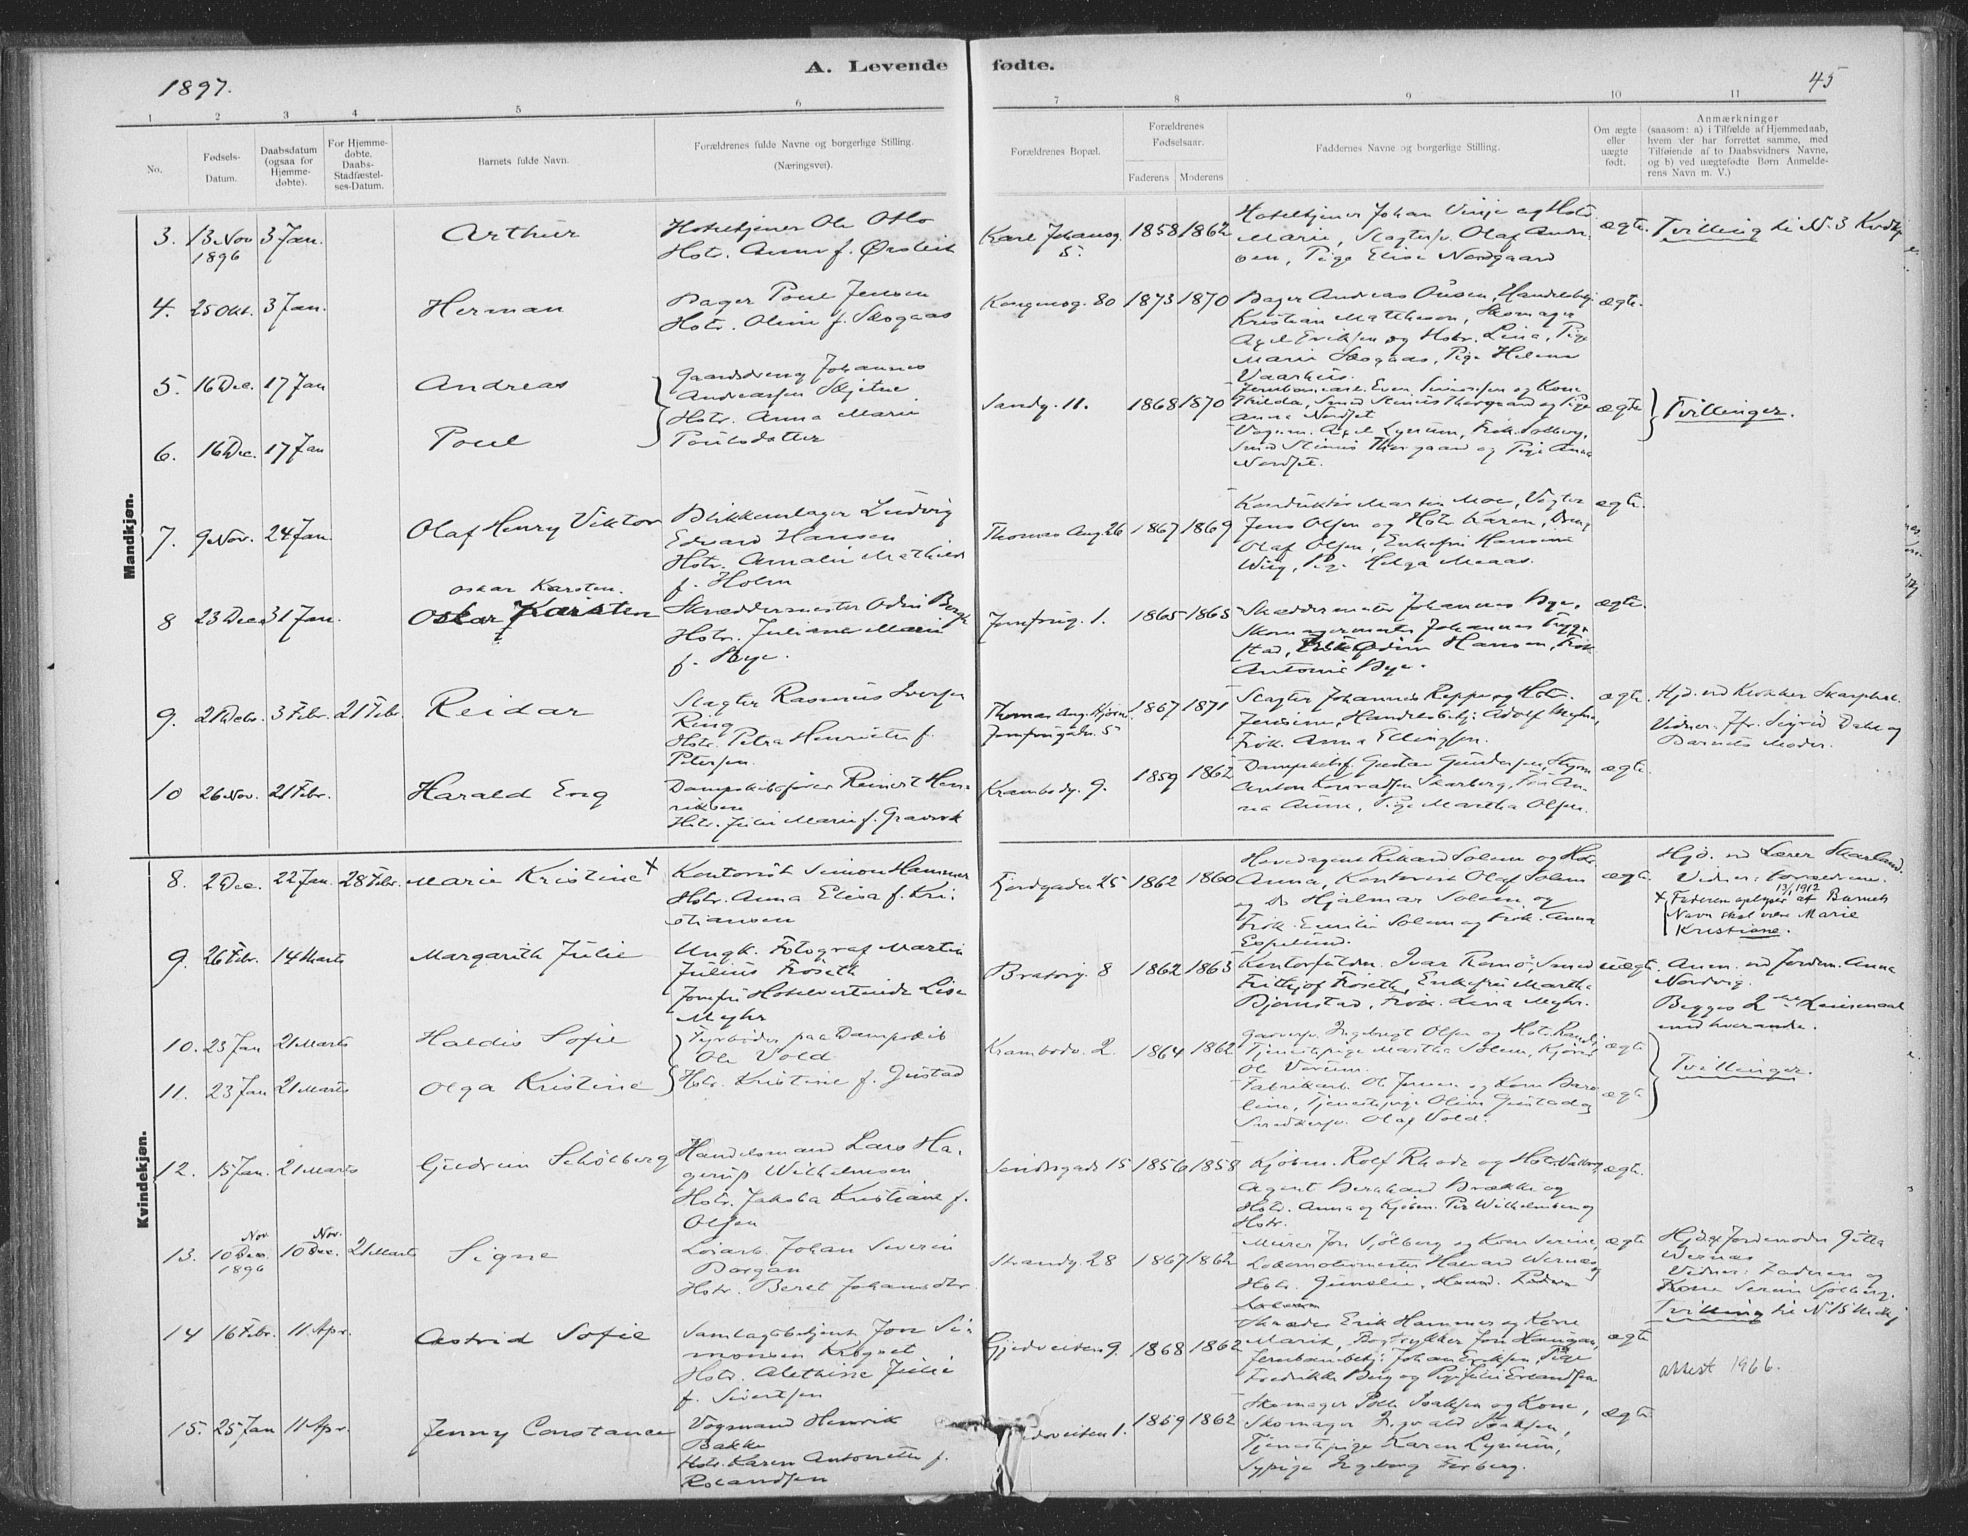 1897.
A. Levende fødte.
45
1 2 3 4 5 6 7 8 9 10 11
No.
Fødsels-
Datum.
Daabsdatum
(ogsaa for
Hjemme-
døbte).
For Hjemme-
døbte.
Daabs-
Stadfæstel-
ses-Datum.
Barnets fulde Navn.
Forældrenes fulde Navne og borgerlige Stilling.
(Næringsvei).
Forældrenes Bopæl.
Forældrenes
Fødselsaar.
Faderens Moderens
Faddernes Navne og borgerlige Stilling.
Om ægte
eller
uægte
født.
Anmærkninger
(saasom: a) i Tilfælde af Hjemmedaab,
hvem der har forrettet samme, med
Tilføiende af to Daabsvidners Navne,
og b) ved uægtefødte Børn Anmelde-
rens Navn m. V.)
Mandkjøn.
3. 13 Nov 3 Jan. Arthur
1896
Hoteltjener Ole Otlo
Hstr. Anna f.
Karl Johansg.
5.
1858 1862
Hoteltjener Johan Vinje og Hstr.
Marie, Slagtersv. Olaf Ander-
sen, Pige Elise Nordgaard
ægte. Tvilling til N. 3
4. 25 Okt. 3 Jan. Herman
Bager Poul Jensen
Hstr. Oline f. Skogaas
Kongensg. 80 1873 1870
Bager Andreas Olsen, Handelsbetj.
Kristian Matheson, Skomager
Axel Eriksen og Hstr. Lina, Pige
Marie Skogaas, Pige Helena
Vaarhus.
ægte.
5. 16 Dec. 17 Jan Andreas
Gaardsdreng Johannes
Andreassen Skjetne
Hstr. Anna Marie
Poulsdatter
Sandg. 11. 1868 1870
Jernbanearb. Even Simonsen og Kone
Hilda, Smed Stinius Thorgaard og Pige
Anna Nordset
ægte Tvillinger.
6. 16 Dec. 17 Jan Poul
Vognm. Axel Lysrum, Frøk. Solberg,
Smed Stinius Thorgaard og Pige Anna
Nordset.
7. 9 Nov. 24 Jan. Olaf Henry Viktor
Blikkenslager Ludvig
Edvard Hansen
Hstr. Amalie Mathilde
f. Holm
Thomas Ang. 26 1867 1869
Konduktør Martin Moe, Vægter
Jens Olsen og Hstr. Karen, Dreng
Olaf Olsen, Enkefru Hansine
Wiig, Pige Helga Maaas.
ægte.
Oskar Karsten.
8 23 Dec. 31 Jan. Oskar Karsten
Skræddermester Odin Bergh
Hstr. Juliane Marie
f. Bye.
Jomfrug. 1. 1865 1865
Skræddermester Johannes Bye,
Skomagermester Johannes Trygg-
stad, Odin Hansen, Frøk.
Antonie Bye.
ægte.
9. 2 Decbr. 3 Febr. 21 Febr. Reidar
Slagter Rasmus Iversen
Ring
Hstr. Petra Henriette f.
Petersen
Thomas Ang. Hjørne
Jomfrugaden 5
1867 1871
Slagter Johannes Reppe og Hstr.
Jensine, Handelsbetj. Adolf Myhre,
Frøk. Anna Ellingsen.
ægte. Hjd. ved Klokker
Vidner: Jfr. Sigrid Dahl og
Barnets Moder.
10 26 Nov. 21 Febr. Harald Eng
Dampskibsfører Reinert Hen-
riksen
Hstr. Julie Marie f. Gravrok
Krambodg. 9. 1859 1862
Dampskibsf. Gustav Gundersen, Styrm.
Anton Konradsen Skarberg, Frk. An-
na Aune, Pige Martha Olsen.
ægte.
Kvindekjøn.
8. 2 Dec. 22 Jan. 28 Febr. Marie Kristine x
Kontorist Simon Hammer
Hstr. Anna Elisa f. Kri-
stiansen
Fjordgaden 25 1862 1860
Rikard Solem og Hstr.
Anna, Kontorist Olaf Solem
og Do Hjalmar Solem og
Frøk. Emilie Solem og Frøk. Anna
Espelund.
ægte. Hjd. ved Lærer Skarland.
Vidner: Forældrene.
13/1 1912
x Faderen oplyser at Barnets
Navn skal være Marie
Kristiane.
9. 26 Febr. 14 Marts Margarith Julie
Ungk. Fotograf Martin
Julius Froseth
Jomfru Hotelvertinde Lise
Myhr
Bratørg. 8 1862 1863
Kontorfuldm. Ivar Romø, Smed
Frithjof Froseth, Enkefru Martha
Bjørnstad, Frøk. Lina Myhr.
uægte. Anm. ved Jordm. Anna
Nordvig.
Begges 2det Leiermaal
med hverandre.
10. 23 Jan 21 Marts Haldis Sofie
Fyrbøder paa Dampskib
Ole Vold
Hstr. Kristine f. Gustad
Krambodv. 2. 1864 1862
Garversv. Ingebrigt Olsen og Hstr. Randi,
Tjenestepige Martha Solem,
Ole
ægte. Tvillinger.
11. 23 Jan 21 Marts Olga Kristine
Fabrikarb. O. Jensen og Kone Bero-
line, Tjenestepige Oline Gustad og
Snedkersv. Olaf Vold.
ægte
12. 15 Jan. 21 Marts Gjudrun Schölberg
Handelsmand Lars Ha-
gerup Wilhelmsen
Hstr. Jakoba Kristiane f.
Olsen
Søndregade 15 1856 1858
Kjøbm. Rolf Rhode og Hstr. Valborg,
Agent Bernhard Brække og
Hstr. Anna og Kjøbm. Per Wilhelmsen og
Hstr.
ægte.
Nov Nov.
13. 10 Dec. 10 Dec. 21 Marts Signe
1896
Løsarb. Johan Severin
Borgan
Hstr. Beret Johansdtr.
Strandg. 28 1867 1862
Murer Jon Sjölberg og Kone Serine,
Lokomotivmester Halvard Wernæs og
Hstr. Gunelie,
ægte. Hjd. af Jordemoder Gitta
Wernæs
Vidner: Faderen og
Kone Serine Sjölberg.
Tvilling til N. 15
14 16 Febr. 11 Apr. Astrid Sofie
Samlagsbetjent Jon Si-
monsen Krogset
Hstr. Alethine Julie
f. Sivertsen
Gjedveiten 9. 1868 1862
Skræder Erik Hammer og Kone
Marit, Bogtrykker Jon Haugan,
Jernbanebetj. Johan Eriksen, Pige
Fredrikke Berg og Pige Julie Erlandsen
ægte
attest 1966.
15. 25 Jan 11 Apr. Jenny Constance
Vognmand Henrik
Bakke
Hstr. Karen Antonette f.
Rolandsen
1. 1859 1862
Skomager Isaksen og Kone,
Skomager Ingvald Isaksen,
Tjenestepige Karen Lysrum,
Sypige Ingeborg Forberg.
ægte